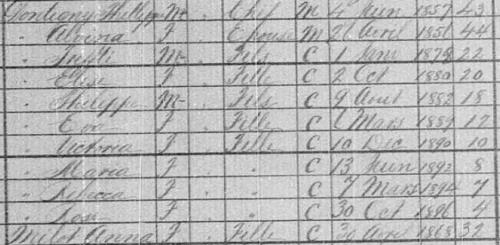 Philippe M Chef M 4 Juin 1857 43
" F Epouse M 2 Avril 1856 44
" M Fils C 1 1878 22
" Elise F Fille C 2 Oct 1880 20
" Philippe M Fils C 9 Aout 1882 18
" Eva F Fille C Mars 1889 12
" Victoria F Fille C 10 Dec 1890 10
" Maria F " C 13 Juin 1892 8
" Rebecca F " C 7 Mars 1894 7
" Rosa F " C 30 Oct 1896 4
Milot Anna F Fille C 30 Avril 1868 32